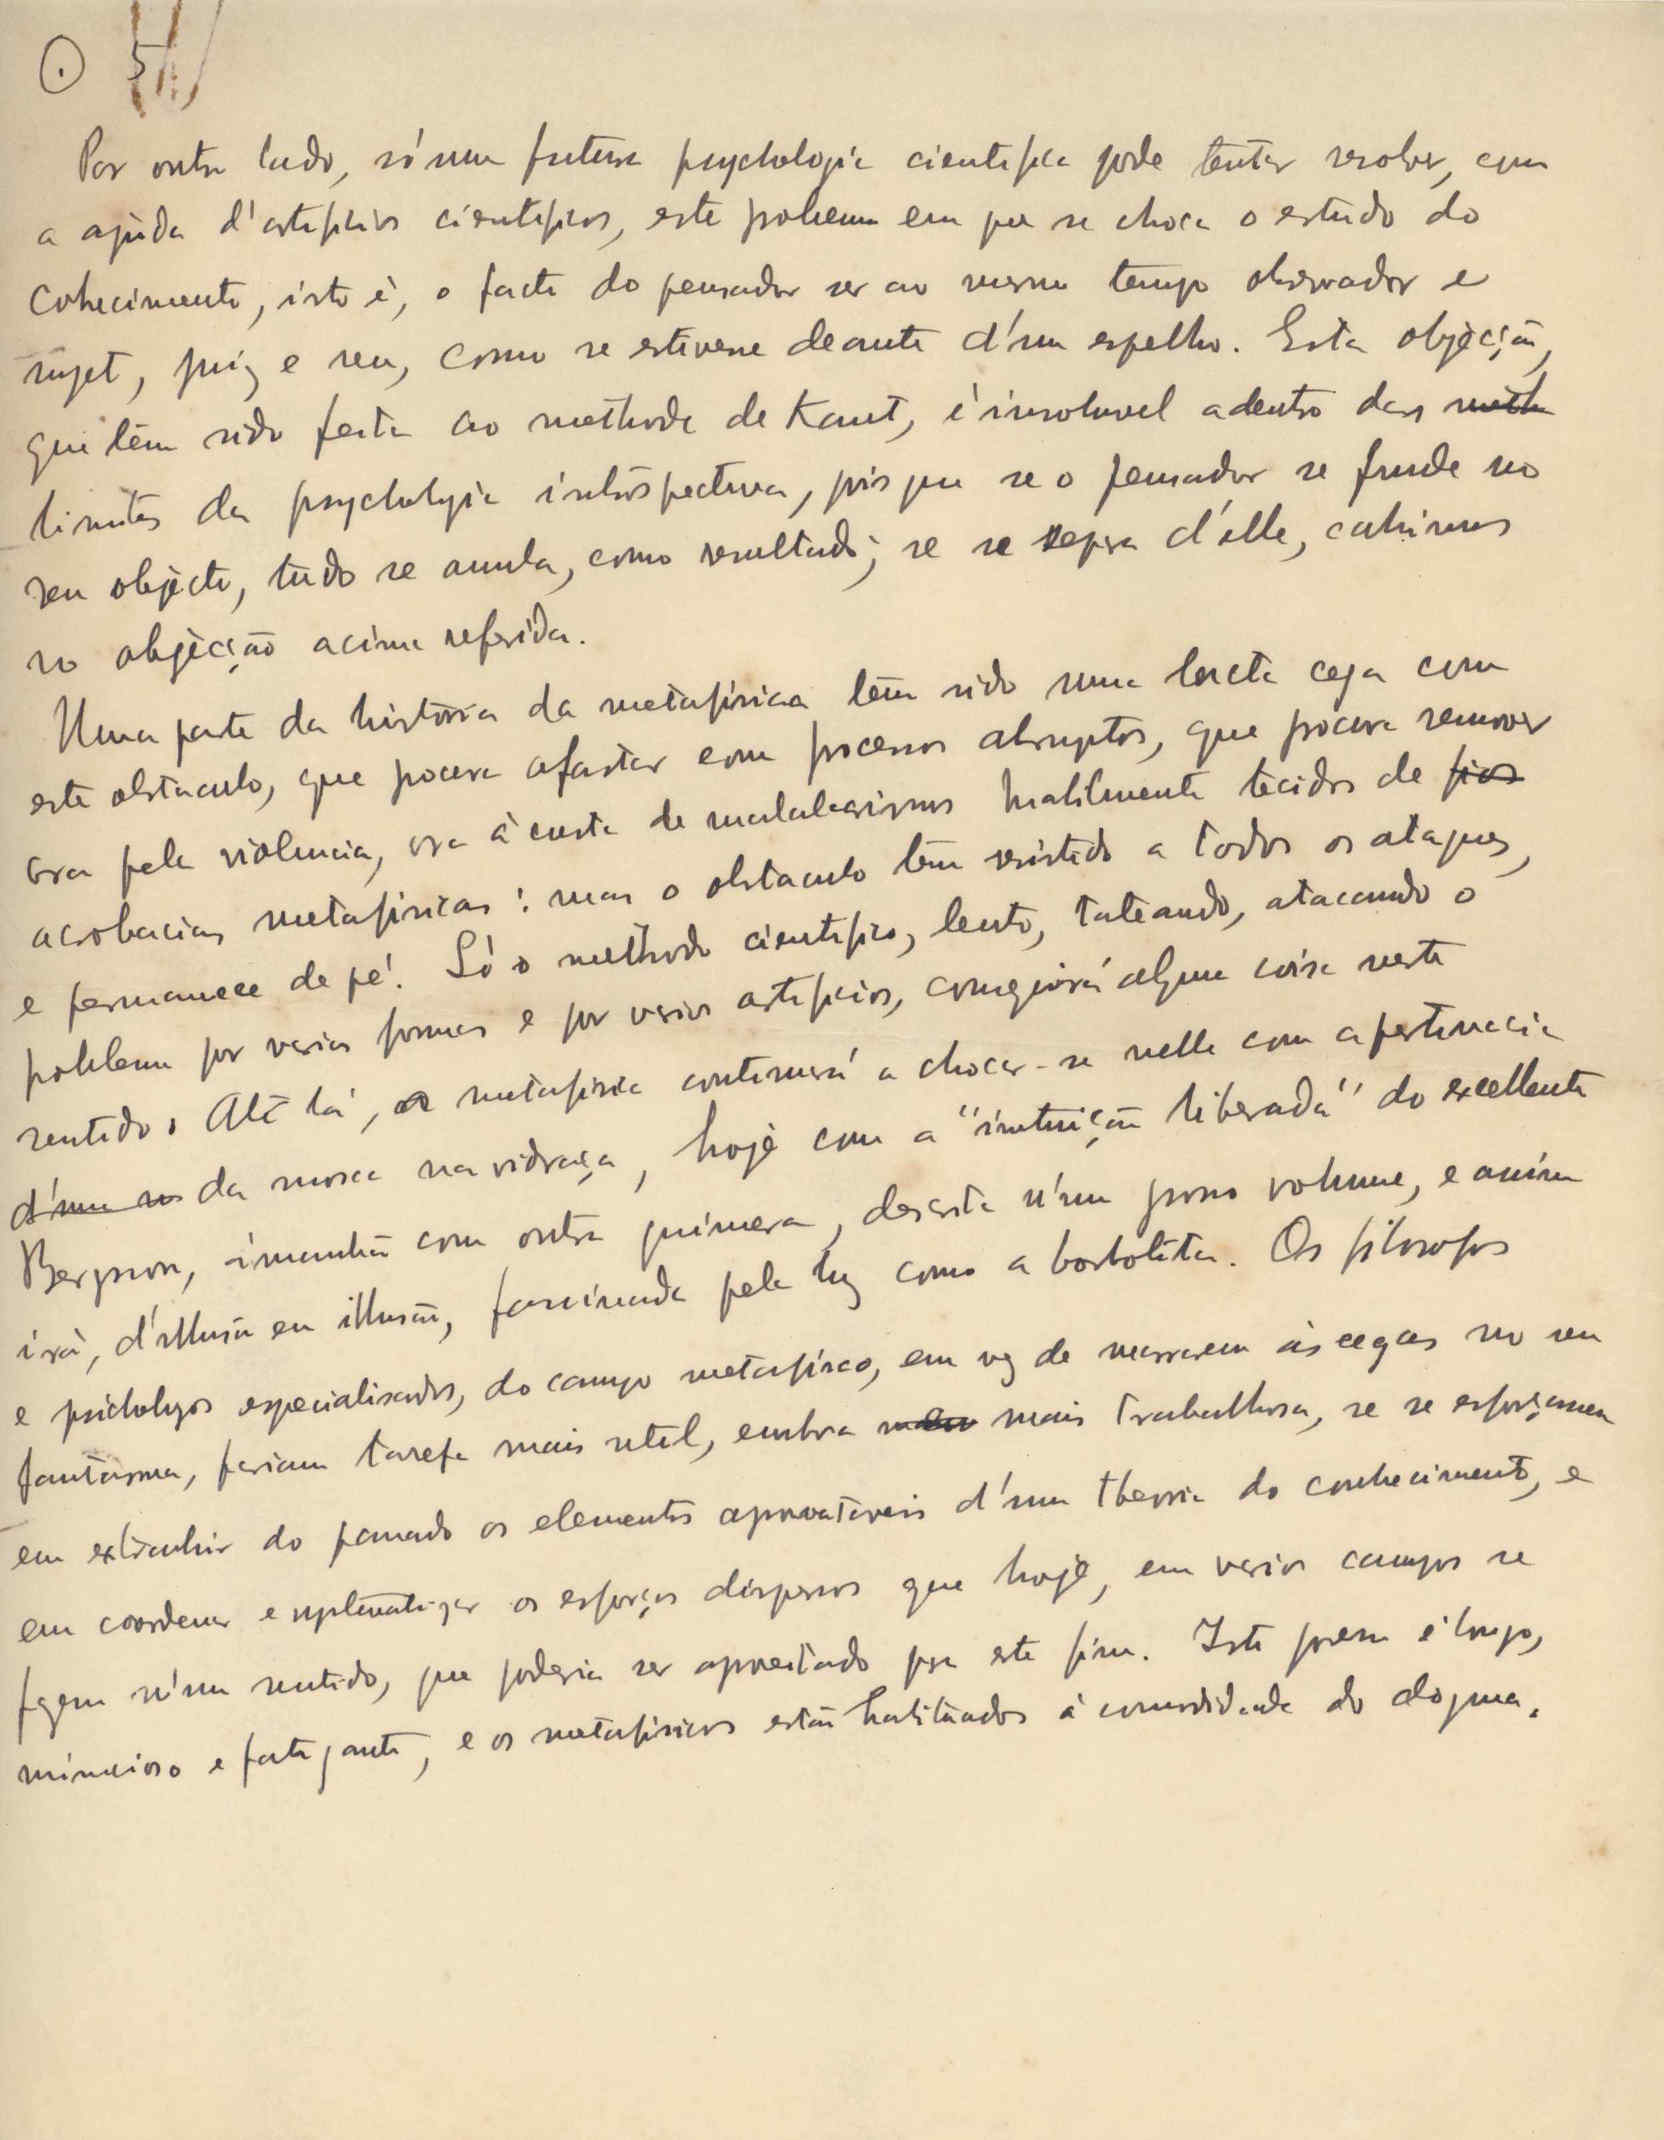 5
Por outro lado, só uma futura psychologia cientifica pode tentar resolver, com
a ajuda d'artificios cientificos, este problema em que se choca o estudo do
conhecimento, isto é, o facto do pensador ser ao mesmo tempo observador e
sujet, juiz e reu, como se estivesse deante d'um espelho. Esta objecção,
que têm sido feita ao methodo de Kant, é insoluvel adentro dos meth
limites da psychologia introspectiva, pois que se o pensador se funde no
seu objecto, tudo se anula, como resultado; se se separa d'elle, cahimos
na objecção acima referida.
Uma parte da história da metafísica têm sido uma lucta cega com
este obstaculo, que procura afastar com processos abruptos, que procura remover
ora pela violencia, ora à custa de malabarismos habilmente tecidos de fios
acrobacias metafísicas: mas o obstaculo têm resistido a todos os ataques,
e permanece de pé. Só o methodo cientifico, lento, tateando, atacando o
problema por varias formas e por varios artificios, conseguirá alguma coisa neste
sentido. Até lá, a metafísica continuará a chocar-se nelle com a pertinacia
d'uma da mosca na vidraça, hoje com a "intuição liberada" do excellente
Bergson, ámanhã com outra quimera, descrita n'um grosso volume, e assim
irá, d'illusão em illusão, fascinada pela luz como a borboleta. Os filosofos
e psichologos especialisados, do campo metafísico, em vez de marrarem ás cegas no seu
fantasma, fariam tarefa mais util, embora mais trabalhosa, se se esforçassem
em extrahir do passado os elementos aproveitaveis d'uma theoria do conhecimento, e
em coordenar e systematizar os esforços dispersos que hoje, em varios campos se
fazem n'um sentido, que poderia ser aproveitado para este fim. Isto porem é longo,
minucioso e fatigante, e os metafísicos estão habituados á comodidade do dogma.